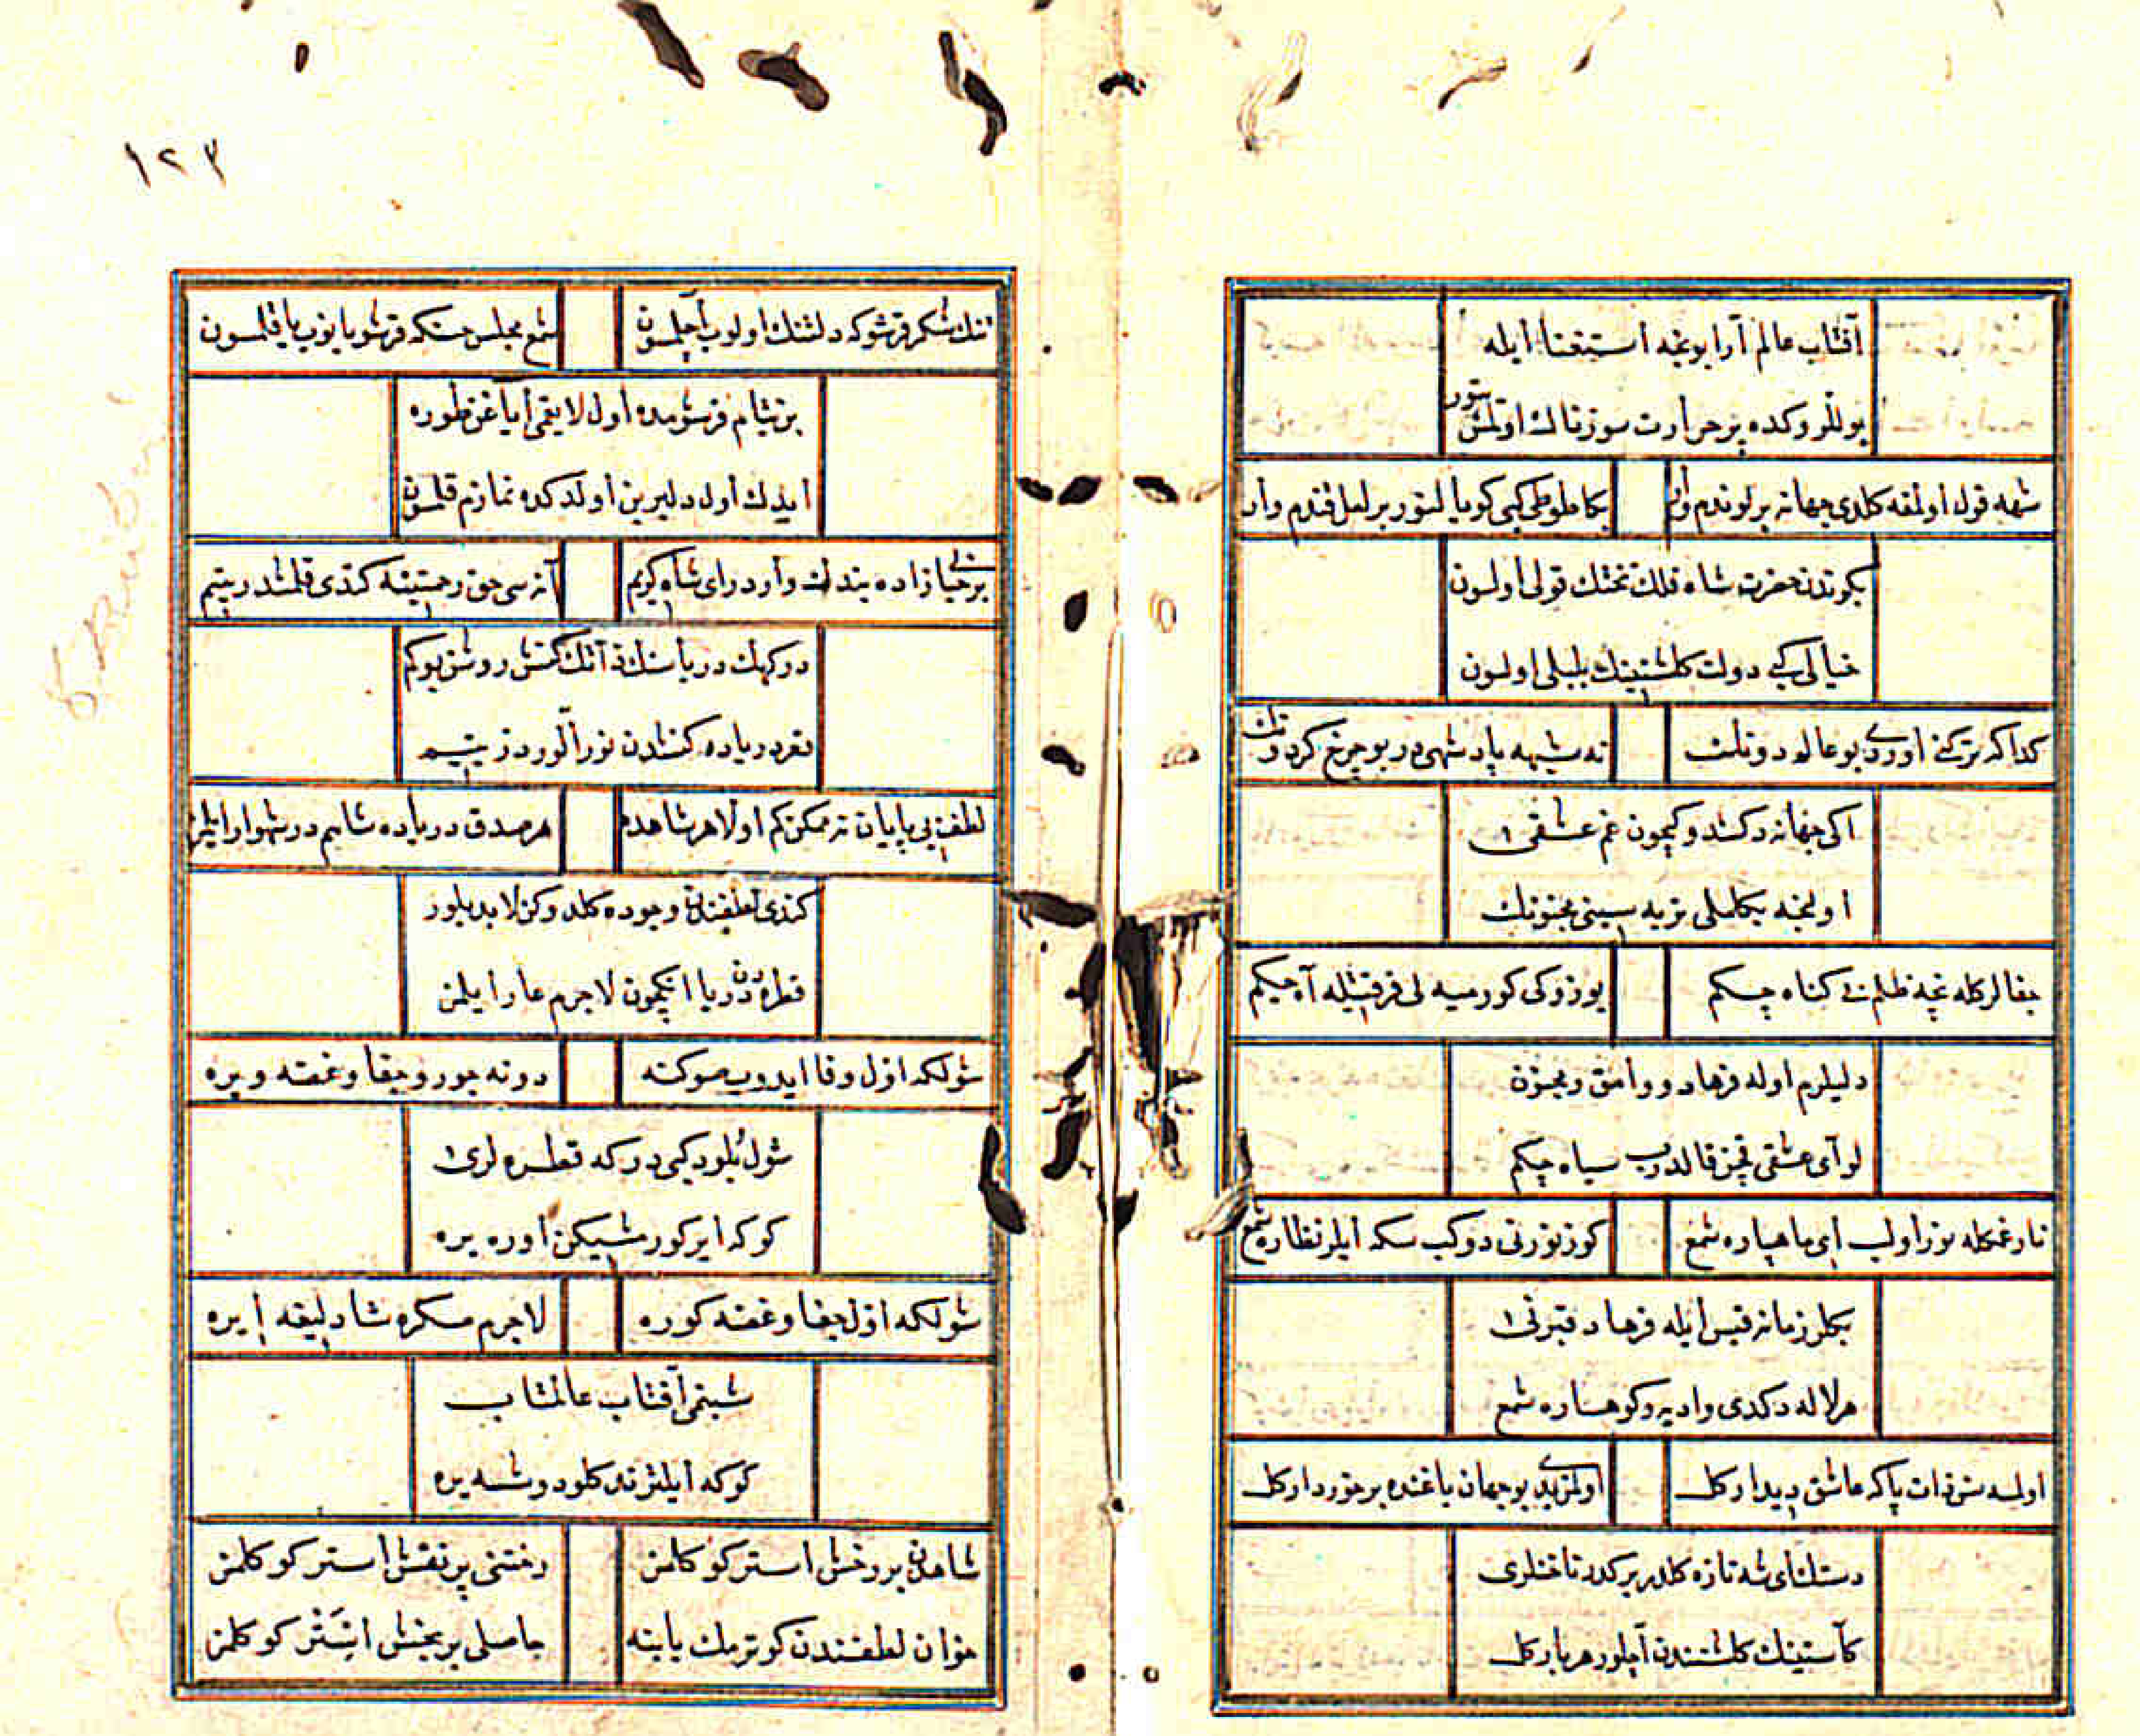 آفتاب عالم آرا بونجه استغنا ايله
يوللروكده پر حرارت سوزناك اولمش
شهه قول اولمغه كلدى جهانه بر لوندم وار
بكا طوطى كبى كويا لنور بر لعل قندم وار
بكوندن حضرت شاه فلك تختك قولى اولسون
خيالى كبى دولت كلشنينك بلبلى اولسون
كدا كه تركنى اوردى بو عالم دونك
نه شبهه پادشهى در بو چرخ كردونك
اكى جهانه دكشدوكيچون غم عشقى
اولنجه عاملى يريه سينى مجنونك
جفالركله نچه ظلم بى كناه چكم
يوزوكى كورميه لى فرقتيله آه چكم
دليلرم اوله فرهاد و وامق و مجنون
لوآى عشقى قچن قالدرب سياه چكم
نار غمكله نور اولب اى ماهپاره شمع
كوز نورنى دوكب سكه ايلر نظاره شمع
بكلر زمانه قيس ايله فرهاد قبرنى
هر لاله دكدى واديه و كوهساره شمع
اولسه سن ذات پاكه عاشق ديدار كل
اولمزيدى بو جهان باغنده برخوردار كل
دستك اى شه تازه كلدر بركدر ناخنلرى
كآستينك كلشنندن آچلور هر بار كل
١٢٣
تنك شكر قرشوكه دلتنك اولوب آچلمسون
شمع مجلس حسنكه قرشو يانوب ياقلمسون
بر نيتام قرشومده اول لايقى اياغن طوره
ايدك اول دلبرين اولدكده نمازم قلمسون
بر خيا زاده بندك وار در اى شاه كريم
آنه سى حق رحمتينه كندى قلمشدر يتيم
در كهك درياسنك آنك كنش روشن بو كم
قعر درياده كنشدن نور آلور در يتيم
لطف بى پايان نه ممكن كم اولا هر شاهده
هر صدف درياده شاهم در شهوار ايلمز
كندى لطفندن وجوده كلدوكن لابد بلور
قطره دن دريا انكچون لاجرم عار ايلمز
شولكه اول وفا ايدوب صوكنه
دونه جور و جفا و غصه ويره
شول بلود كبى در كه قطره لرى
كوكه ايركورمشيكن اوره يره
شولكه اول جفا و غصه كوره
لاجرم صكره شادليغه ايره
شبنمى آفتاب عالمتاب
كوكه ايلتر نه كلو دوشه يره
شاهدن بر رخش استر كوكلمز
رختنى پر نقش استر كوكلمز
خوان لطفندن كوترمك يابنه
حاصلى بر بخش استر كوكلمز